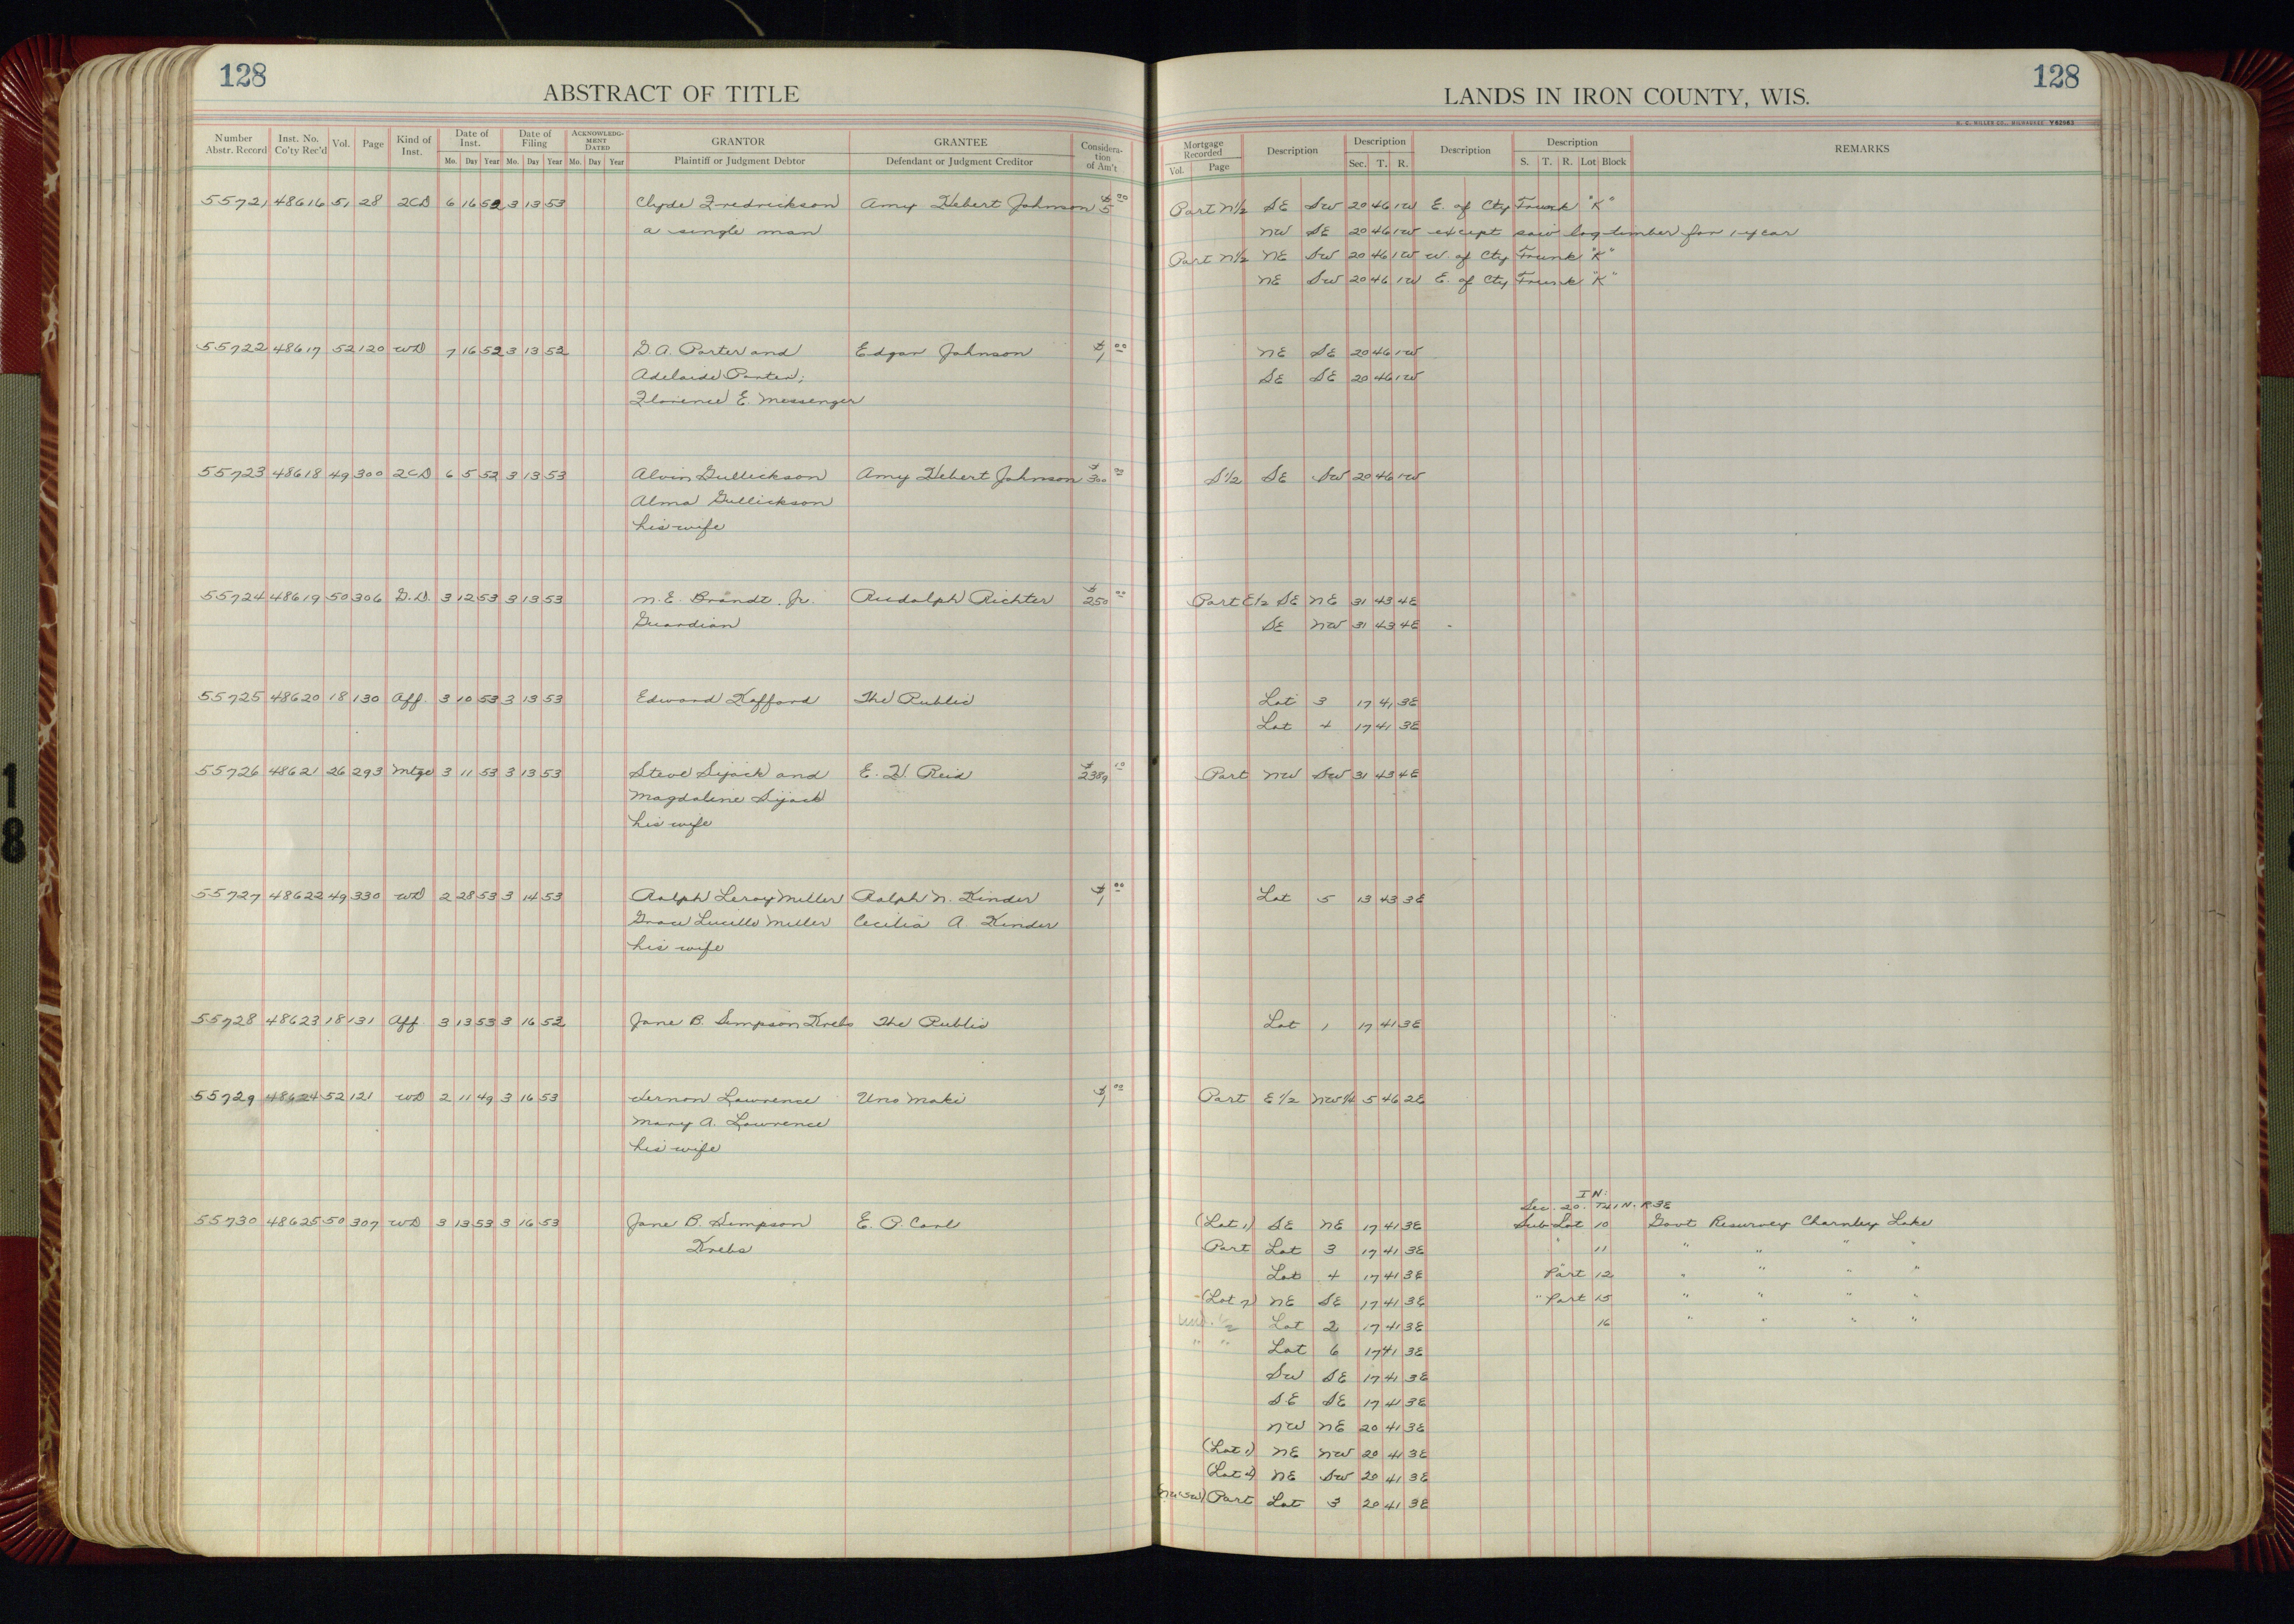 128
ABSTRACT OF TITLE
Number Abstr. Record Inst. No. Co'ty Rec'd Vol. Page Kind of Inst. Date of Inst. Mo. Day Year Date of Filing Mo. Day Year ACKNOWLEDGMENT DATED Mo. Day Year GRANTOR Plaintiff or Judgment Debtor GRANTEE Defendant or Judgment Creditor Consideration of Am't
55721 48616 51 28 2CD 6 16 52 3 13 53 Clyde Fredrickson Amy Hebert Johnson $5 00
a single man
55722 48617 52 120 WD 7 16 52 3 13 52 G.A. Porter and Edgar Johnson $1 00
Adelaide Porter;
Florence E. Messenger
55723 48618 49 300 2CD 6 5 52 3 13 53 Alvin Gullickson Amy Hebert Johnson $300 00
Alma Gullickson
his wife
55724 48619 50 306 G.D. 3 12 53 3 13 53 N.E. Brandt, Jr. Rudolph Richter $250 00
Guardian
55725 48620 18 130 Aff. 3 10 53 3 13 53 Edward Kafford The Public
55726 48621 26 293 Mtge 3 11 53 3 13 53 Steve Sijack and E. H. Reid $2389 10
Magdaline Sijack
his wife
55727 48622 49 330 WD 2 28 53 3 14 53 Ralph Leroy Miller Ralph N. Kinder $1 00
Grace Lucille Miller Cecilia A. Kinder
his wife
55728 48623 18 131 Aff. 3 13 53 3 16 52 Jane B. Simpson Krebs The Public
55729 48624 52 121 WD 2 11 49 3 16 53 Vernon Lawrence Uno Maki $1 00
Mary A. Lawrence
his wife
55730 48625 50 307 WD 3 13 53 3 16 53 Jane B. Simpson E. P. Carl
Krebs
128
LANDS IN IRON COUNTY, WIS.
H. C. MILLER CO., MILWAUKEE Y62963
Mortgage Recorded Vol. Page Description Description Sec. T. R. Description Description S. T. R. Lot Block REMARKS
Part N1/2 SE SW 20 46 1W E. of Cty Trunk "K"
NW SE 20 46 1W except saw log timber for 1 year
Part N1/2 NE SW 20 46 1W W. of Cty Trunk "K"
NE SW 20 46 1W E. of Cty Trunk "K"
NE SE 20 46 1W
SE SE 20 46 1W
S1/2 SE SW 20 46 1W
Part E1/2 SE NE 31 43 4E
SE NW 31 43 4E
Lot 3 17 41 3E
Lot 4 17 41 3E
Part NW SW 31 43 4E
Lot 5 13 43 3E
Lot 1 17 41 3E
Part E1/2 NW1/4 5 46 2E
IN:
Sec. 20. T41N. R3E
(Lot 1) SE NE 17 41 3E Sub Lot 10 Govt Resurvey Charnley Lake
Part Lot 3 17 41 3E " 11 " " " "
Lot 4 17 41 3E Part 12 " " " "
(Lot 7) NE SE 17 41 3E " Part 15 " " " "
Und. 1/2 Lot 2 17 41 3E 16 " " " "
" " Lot 6 17 41 3E
SW SE 17 41 3E
SE SE 17 41 3E
NW NE 20 41 3E
(Lot 1) NE NW 20 41 3E
(Lot 4) NE SW 20 41 3E
(NW SW) Part Lot 3 20 41 3E